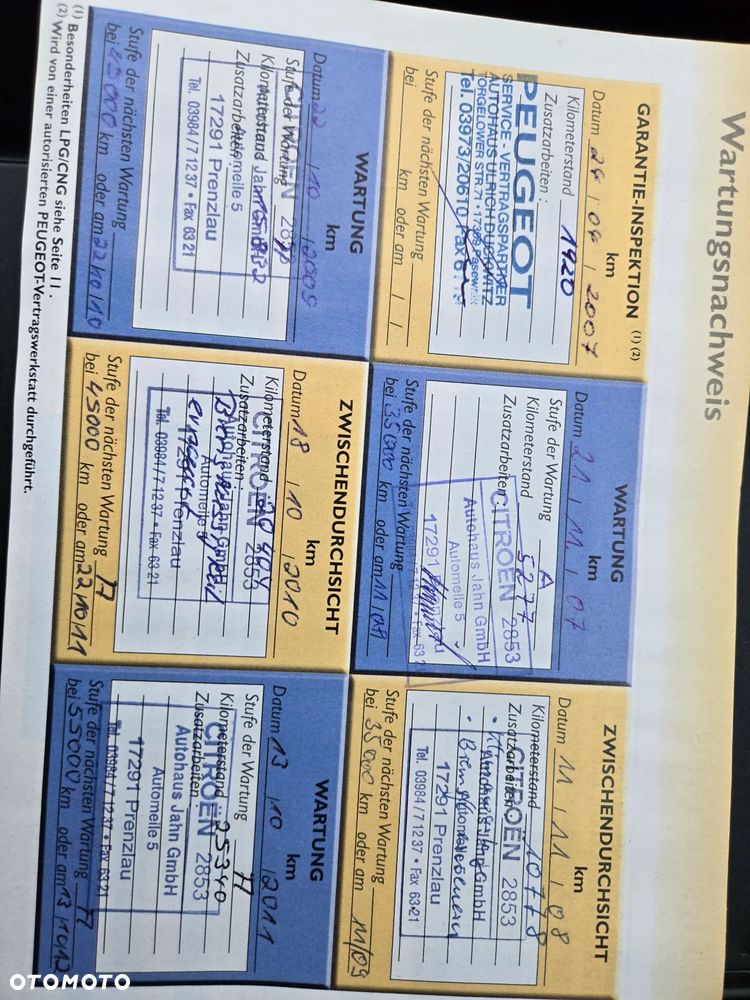 Wartungsnachweis
GARANTIE-INSPEKTION (1) (2)
km
Datum 24 / 04 / 2007
Kilometerstand 1920
Zusatzarbeiten :
PEUGEOT
SERVICE - VERTRAGSPARTNER
AUTOHAUS ULRICH
TORGELOWER STR. 71 • 17309
Tel. 03973/20610 Fax
Stufe der nächsten Wartung
bei km oder am / /
WARTUNG
km
Datum 21 / 11 / 07
Stufe der Wartung A
Kilometerstand 5277
Zusatzarbeiten :
CITROËN 2853
Autohaus Jahn GmbH
Automeile 5
17291
Stufe der nächsten Wartung
bei 35000 km oder am 11 / 09
ZWISCHENDURCHSICHT
km
Datum 11 / 11 / 08
Kilometerstand 10778
Zusatzarbeiten
CITROËN 2853
GmbH
17291 Prenzlau
Tel. 03984/7 12 37 • Fax 63 21
Stufe der nächsten Wartung
bei 35000 km oder am 11/09
WARTUNG
km
Datum 22 / 10 / 2009
Stufe der Wartung
Kilometerstand
Zusatzarbeiten
Automeile 5
17291 Prenzlau
Tel. 03984/7 12 37 • Fax 63 21
Stufe der nächsten Wartung
bei 45000 km oder am 22/10/10
ZWISCHENDURCHSICHT
km
Datum 18 / 10 / 2010
Kilometerstand
Zusatzarbeiten :
CITROËN 2853
Autohaus Jahn GmbH
Automeile 5
17291 Prenzlau
Tel. 03984/7 12 37 • Fax 63 21
Stufe der nächsten Wartung
bei 45000 km oder am 22/10/11
WARTUNG
km
Datum 13 / 10 / 2011
Stufe der Wartung
Kilometerstand 25340
Zusatzarbeiten :
CITROËN 2853
Autohaus Jahn GmbH
Automeile 5
17291 Prenzlau
Tel. 03984/7 12 37 • Fax 63 21
Stufe der nächsten Wartung
bei 55000 km oder am 13/10/12
(1) Besonderheiten LPG/CNG siehe Seite 11.
(2) Wird von einer autorisierten PEUGEOT-Vertragswerkstatt durchgeführt.
OTOMOTO